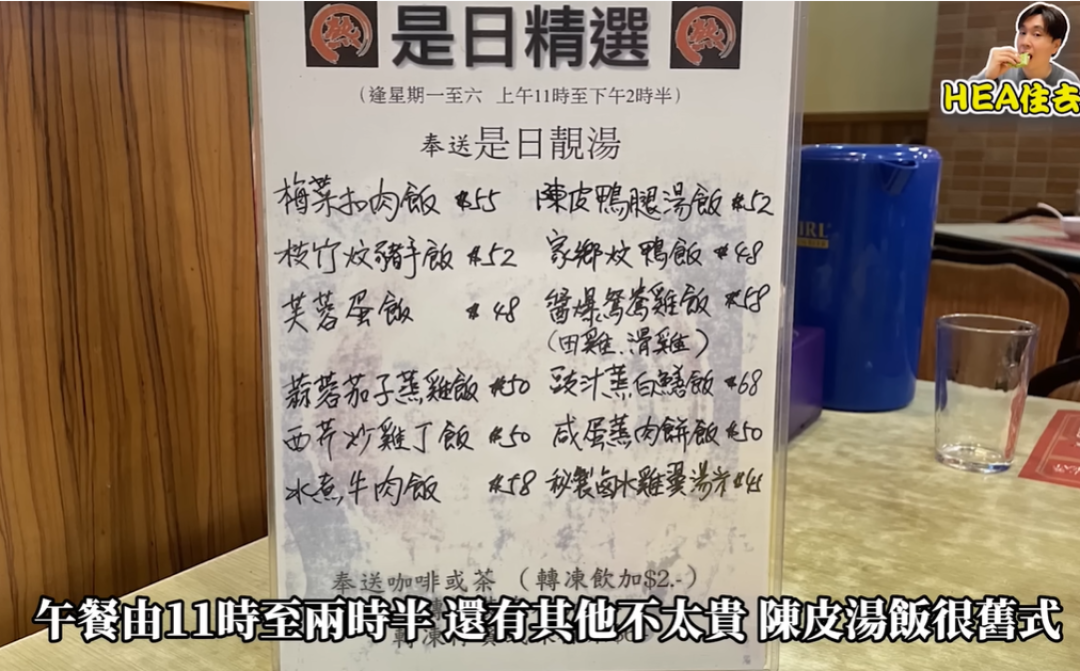 是日精選
(逢星期一至六 上午11時至下午2時半)
奉送是日靚湯
梅菜扣肉飯 $55 陳皮鴨腿湯飯 $52
枝竹炆豬手飯 $52 家鄉炆鴨飯 $48
芙蓉蛋飯 $48 醬爆鴛鴦雞飯 $58
(田雞.滑雞)
蒜蓉茄子蒸雞飯 $50 豉汁蒸白鱔飯 $68
西芹炒雞丁飯 $50 咸蛋蒸肉餅飯 $50
水煮牛肉飯 $58 秘製鹵水雞翼湯米 $45
奉送咖啡或茶 (轉凍飲加$2.-)
午餐由11時至兩時半 還有其他不太貴 陳皮湯飯很舊式
HEA住去